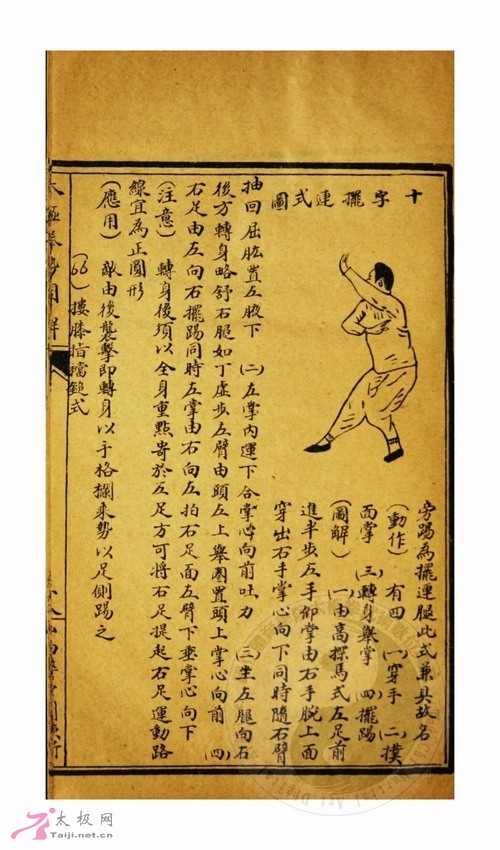 十字擺連式圖
旁踢為擺連腿此式兼具故名
(動作) 有四 (一)穿手 (二)撲
面掌 (三)轉身舉掌 (四)擺踢
(圖解) (一)由高探馬式左足前
進半步左手仰掌由右手腕上面
穿出右手掌心向下同時隨右臂
抽回屈肱置左腋下 (二)左掌內運下合掌心向前吐力 (三)坐左腿向右
後方轉身略舒右腿如丁虛步左臂由頭左上舉圈置頭上掌心向前 (四)
右足由左向右擺踢同時左掌由右向左拍右足面左臂下垂掌心向下
(注意) 轉身後須以全身重點寄於左足方可將右足提起右足運動路
線宜為正圓形
(應用) 敵由後襲擊即轉身以手格攔來勢以足側踢之
(66) 摟膝指襠鎚式
太极网
Taiji.net.cn